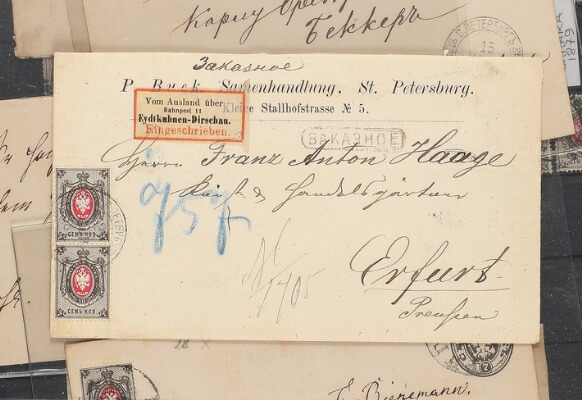 Карлу
Беккеръ
С.ПЕТЕРБУРГЪ
15
1879
Заказное
P. Buck, Samenhandlung, St. Petersburg.
Kleine Stallhofstrasse № 5.
Vom Ausland über
Bahnpost 11
Eydtkuhnen-Dirschau.
Eingeschrieben.
ЗАКАЗНОЕ
Herrn Franz Anton Haage
Kunst & Handelsgärtner
СЕМЬ КОП.
СЕМЬ КОП.
№ 1405
Erfurt
Preußen
Biermann.